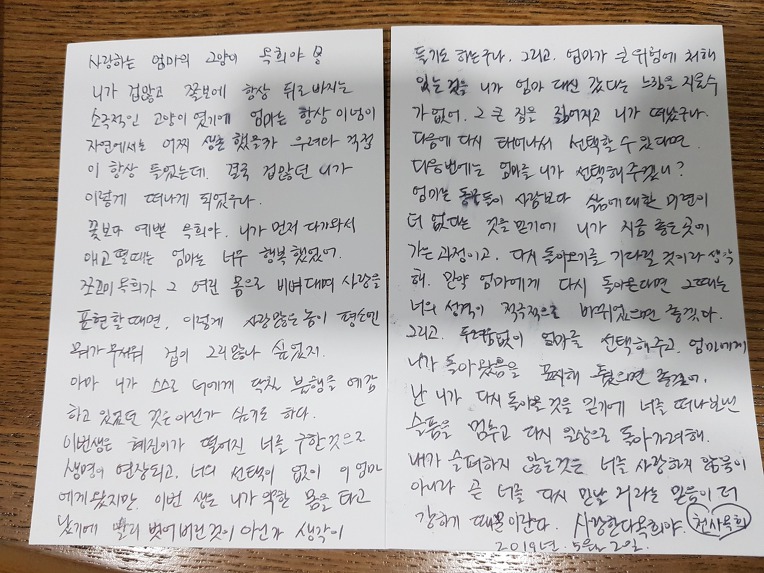 사랑하는 엄마의 고양이 옥희야
니가 겁많고 쫄보에 항상 뒤로 빠지는
소극적인 고양이 였기에 엄마는 항상 이녕이
자연에서는 어찌 생존했을까 우려와 걱정
이 항상 들었는데. 결국 겁많던 니가
이렇게 떠나게 되었구나.
꽃보다 예쁜 옥희야. 니가 먼저 다가와서
애교 떨때는 엄마는 너무 행복했었어.
쪼꼬미 옥희가 그 여린 몸으로 비벼대며 사랑을
표현할때면, 이렇게 사랑많은 놈이 평소엔
뭐가 무서워 겁이 그리많나 싶었지.
아마 니가 스스로 너에게 닥칠 불행을 예감
하고 있었던 것은 아닌가 싶기도 하다.
이번생은 혜진이가 떨어진 너를 구한것으로
생명이 연장되고, 너의 선택이 없이 이 엄마
에게 왔지만, 이번 생은 니가 약한 몸을 타고
났기에 빨리 벗어버린것이 아닌가 생각이
들기도 하는구나. 그리고, 엄마가 큰 위험에 처해
있는것을 니가 엄마 대신 갔다는 느낌을 지울수
가 없어. 그 큰 짐을 짊어지고 니가 떠났구나.
다음에 다시 태어나서 선택할 수 있다면,
다음번에는 엄마를 니가 선택해주겠니?
엄마는 동물들이 사람보다 삶에 대한 미련이
더 없다는 것을 믿기에 니가 지금 좋은곳에
가는 과정이고, 다시 돌아오기를 기다릴 것이라 생각
해. 만약 엄마에게 다시 돌아온다면 그때는
너의 성격이 적극적으로 바뀌었으면 좋겠다.
그리고. 두려움없이 엄마를 선택해주고. 엄마에게
니가 돌아왔음을 표시해 줬으면 좋겠어.
난 니가 다시 돌아올 것을 믿기에 너를 떠나보낸
슬픔을 멈추고 다시 일상으로 돌아가려해.
내가 슬퍼하지 않는것은 너를 사랑하지 않음이
아니라 곧 너를 다시 만날 거라는 믿음이 더
강하기 때문이란다. 사랑한다옥희야. 천사옥희
2019년. 5월 2일.